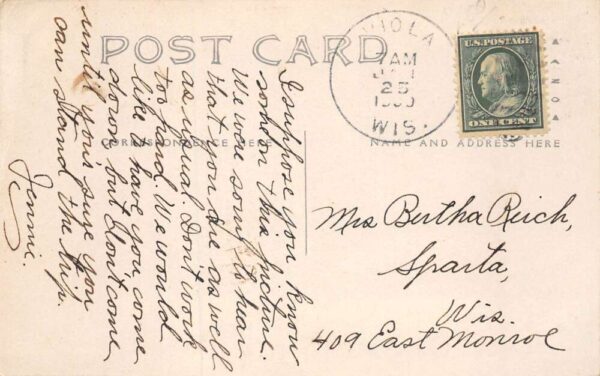 POST CARD
CORRESPONDENCE HERE
NAME AND ADDRESS HERE
VIOLA
7 AM
25
WIS.
U.S. POSTAGE
ONE CENT
I suppose you know
on this picture.
We to hear
that you are as well
as usual. Don't work
too hard. We would
like to have you come
down but don't come
until your sure you
can stand the trip.
Jennie.
Mrs Bertha Reich,
Sparta,
Wis.
409 East Monroe